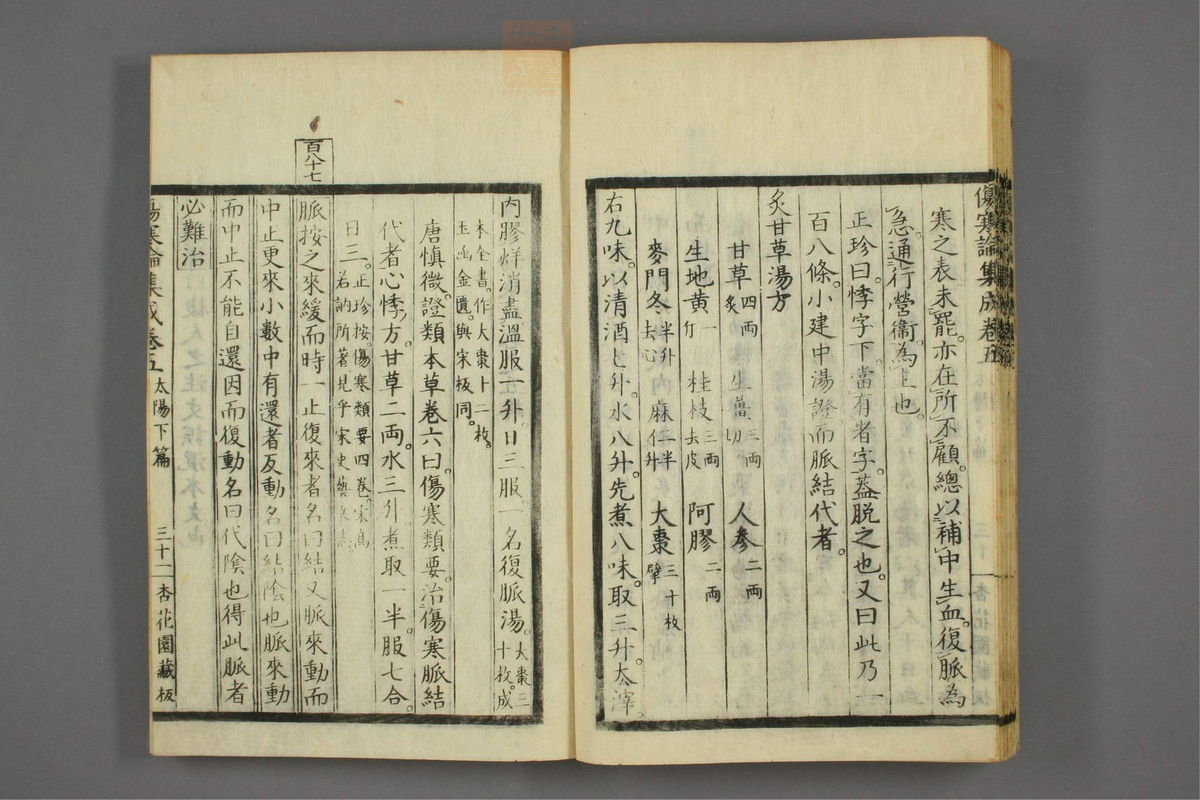 傷寒論集成卷五
寒之表未罷。亦在所不顧。總以補中生血。復脈為
急。通行營衞。為主也。
正珍曰。悸字下。當有者字。蓋脫之也。又曰此乃一
百八條。小建中湯證而脈結代者。
炙甘草湯方
甘草 四兩 炙 生薑 三兩 切 人參 二兩
生地黃 一斤 桂枝 三兩 去皮 阿膠 二兩
麥門冬 半升 去心 麻仁 半升 大棗 三十枚 擘
右九味。以清酒七升。水八升。先煮八味。取三升。去滓。
內膠烊消盡溫服一升。日三服。一名復脈湯。大棗三十枚。成
本全書。作大棗十二枚。玉函金匱。與宋板同。
唐慎微。證類本草卷六曰。傷寒類要。治傷寒脈結
代者心悸。方。甘草二兩。水三升。煮取一半。服七合。
日三。正珍按。傷寒類要四卷。宋高若訥所著見乎宋史藝文志
百八十七
脈按之來緩而時一止復來者名曰結又脈來動而
中止更來小數中有還者反動名曰結陰也脈來動
而中止不能自還因而復動名曰代陰也得此脈者
必難治
傷寒論集成卷五 太陽下篇 三十二 杏花園藏板